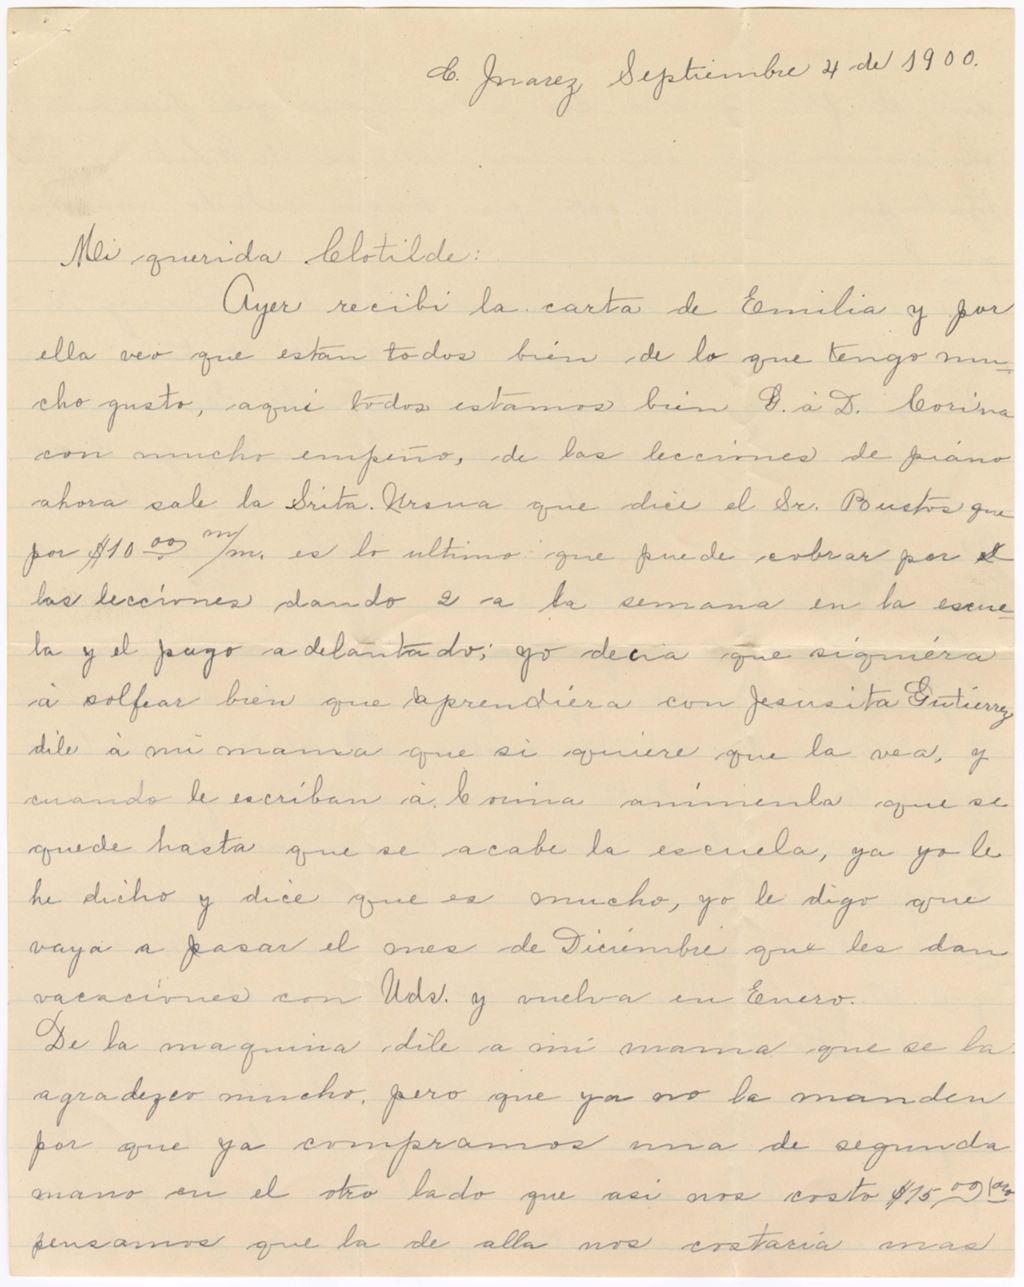 C. Juarez Septiembre 4 de 1900.
Mi querida Clotilde:
Ayer recibi la carta de Emilia y por
ella veo que estan todos bién de lo que tengo mu-
cho gusto, aqui todos estamos bien G. á D. Corina
con mucho empeño, de las lecciones de piano
ahora sale la Srita. Ursua que dice el Sr. Bustos que
por $10 00 m/m. es lo ultimo que puede cobrar por
las lecciones dando 2 a la semana en la escue-
la y el pago adelantado; yo decia que siquiéra
á solfear bien que aprendiéra con Jesusita Gutiérrez
dile á mi mama que si quiere que la vea, y
cuando le escriban á Corina anímenla que se
quede hasta que se acabe la escuela, ya yo le
he dicho y dice que es mucho, yo le digo que
vaya a pasar el mes de Diciémbre que les dan
vacaciones con Uds. y vuelva en Enero.
De la maquina dile a mi mama que se la
agradezco mucho, pero que ya no la manden
por que ya compramos una de segunda
mano en el otro lado que asi nos costo $15 00 oro
pensamos que la de alla nos costaria mas